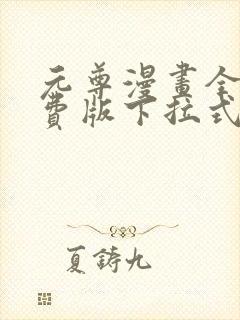 元尊漫畫全
費版下拉式
夏鋳九